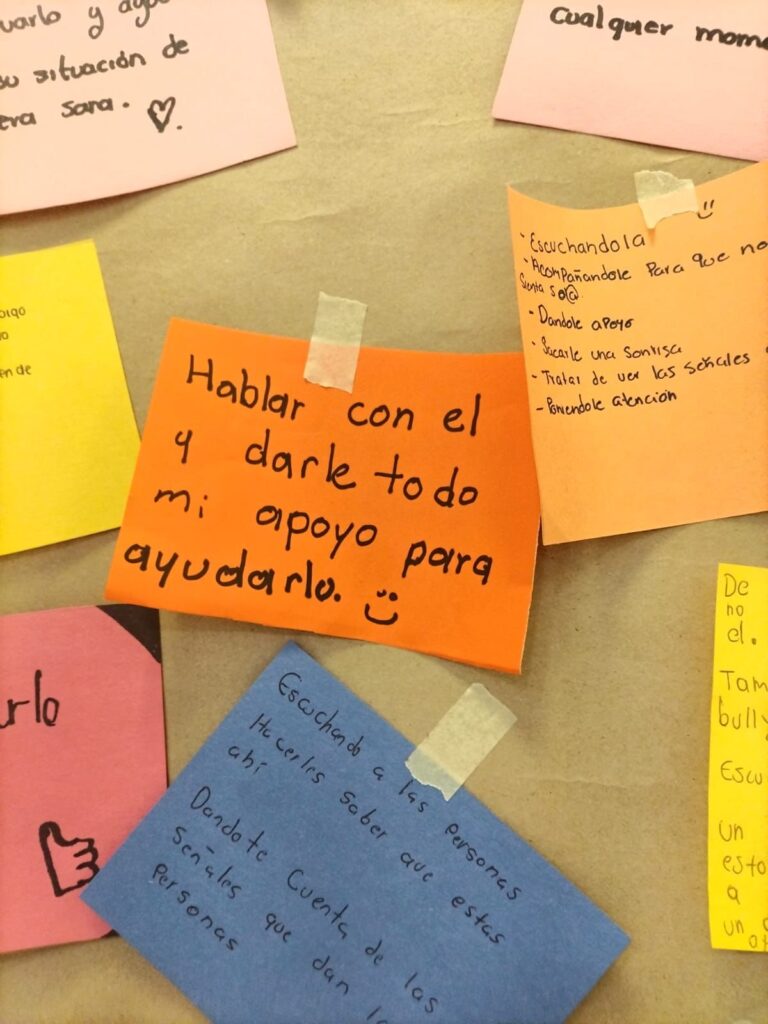 y
su situación de
era sana. ♡.
cualquier
- Escuchandola
- Acompañandole Para que no
Sienta s@l@
- Dandole apoyo
- Sacarle una sonrisa
- Tratar de ver las señales
- Poniendole atención
en de
Hablar con el
y darle todo
mi apoyo para
ayudarlo.
De
no
el.
Tam
bully
Escu
un
esto
a
un
rlo
Escuchando a las personas
Hacerles saber que estas
ahí
Dandote Cuenta de las
señales que dan
Personas